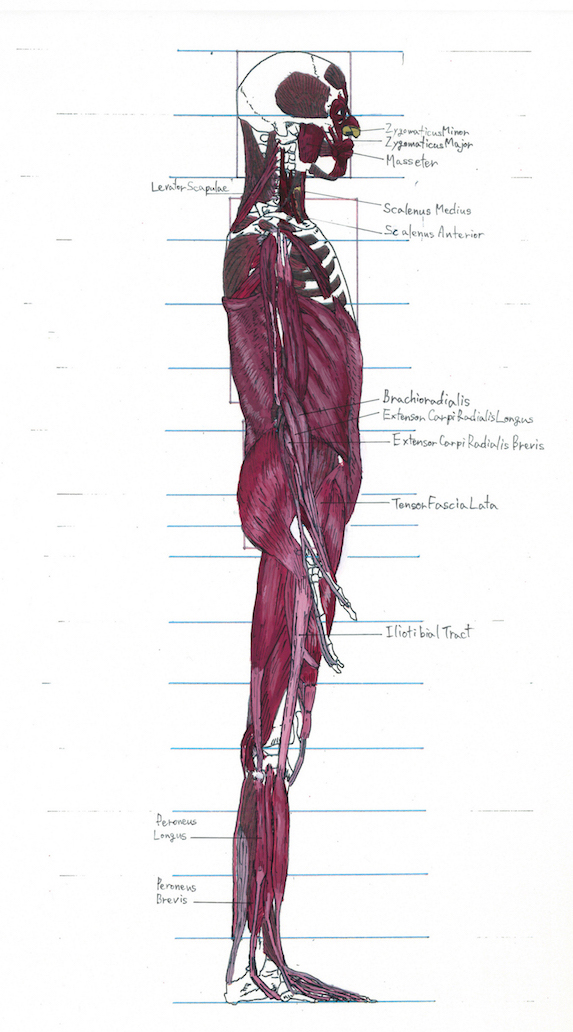 Zygomaticus Minor
Zygomaticus Major
Masseter
Levator Scapulae
Scalenus Medius
Scalenus Anterior
Brachioradialis
Extensor Carpi Radialis Longus
Extensor Carpi Radialis Brevis
Tensor Fascia Lata
Iliotibial Tract
Peroneus
Longus
Peroneus
Brevis